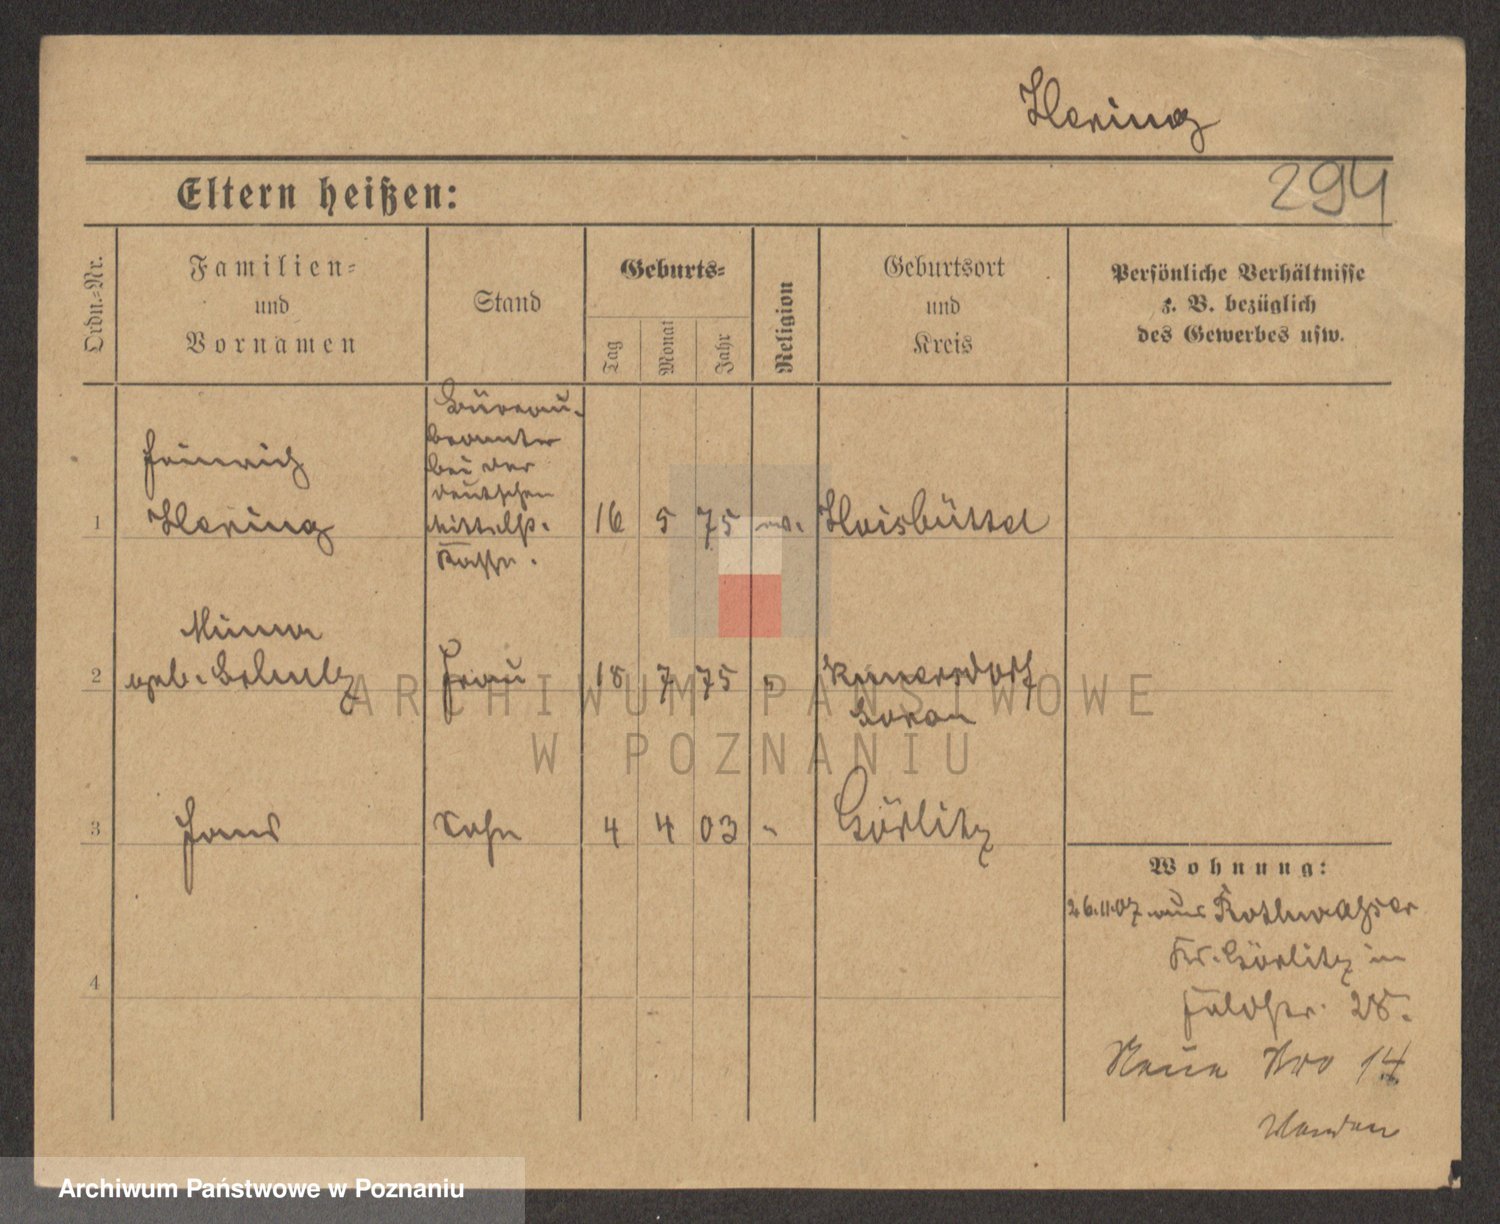 Hering
294
Eltern heißen:
Ordn.-Nr.
Familien-
und
Vornamen
Stand
Geburts-
Tag
Monat
Jahr
Religion
Geburtsort
und
Kreis
Persönliche Verhältnisse
z. B. bezüglich
des Gewerbes usw.
1
Heinrich
Hering
Büreau-
beamter
bei der
deutschen
Mittelst.
Kasse.
16
5
75
ev.
Hoisbüttel
2
Minna
geb.
Frau
18
7
75
"
Kunersdorf
Sorau
3
Hans
Sohn
4
4
03
"
Görlitz
4
Wohnung:
26.11.07 aus Rothwasser
Kr. Görlitz in
Feldstr. 28.
Neue Nro 14
ARCHIWUM PAŃSTWOWE
W POZNANIU
Archiwum Państwowe w Poznaniu